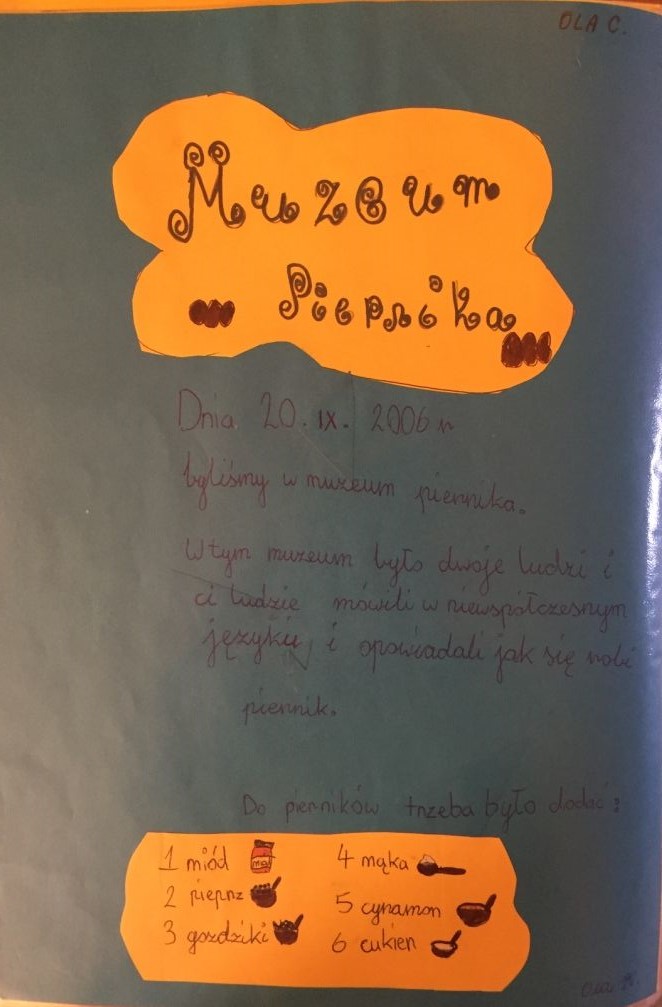 OLA C.
Muzeum
Piernika
Dnia 20. IX. 2006 r
byliśmy w muzeum piernika.
W tym muzeum było dwoje ludzi i
ci ludzie mówili w niewspółczesnym
języku i opowiadali jak się robi
piernik.
Do pierników trzeba było dodać:
1 miód
2 pieprz
3 goździki
4 mąka
5 cynamon
6 cukier